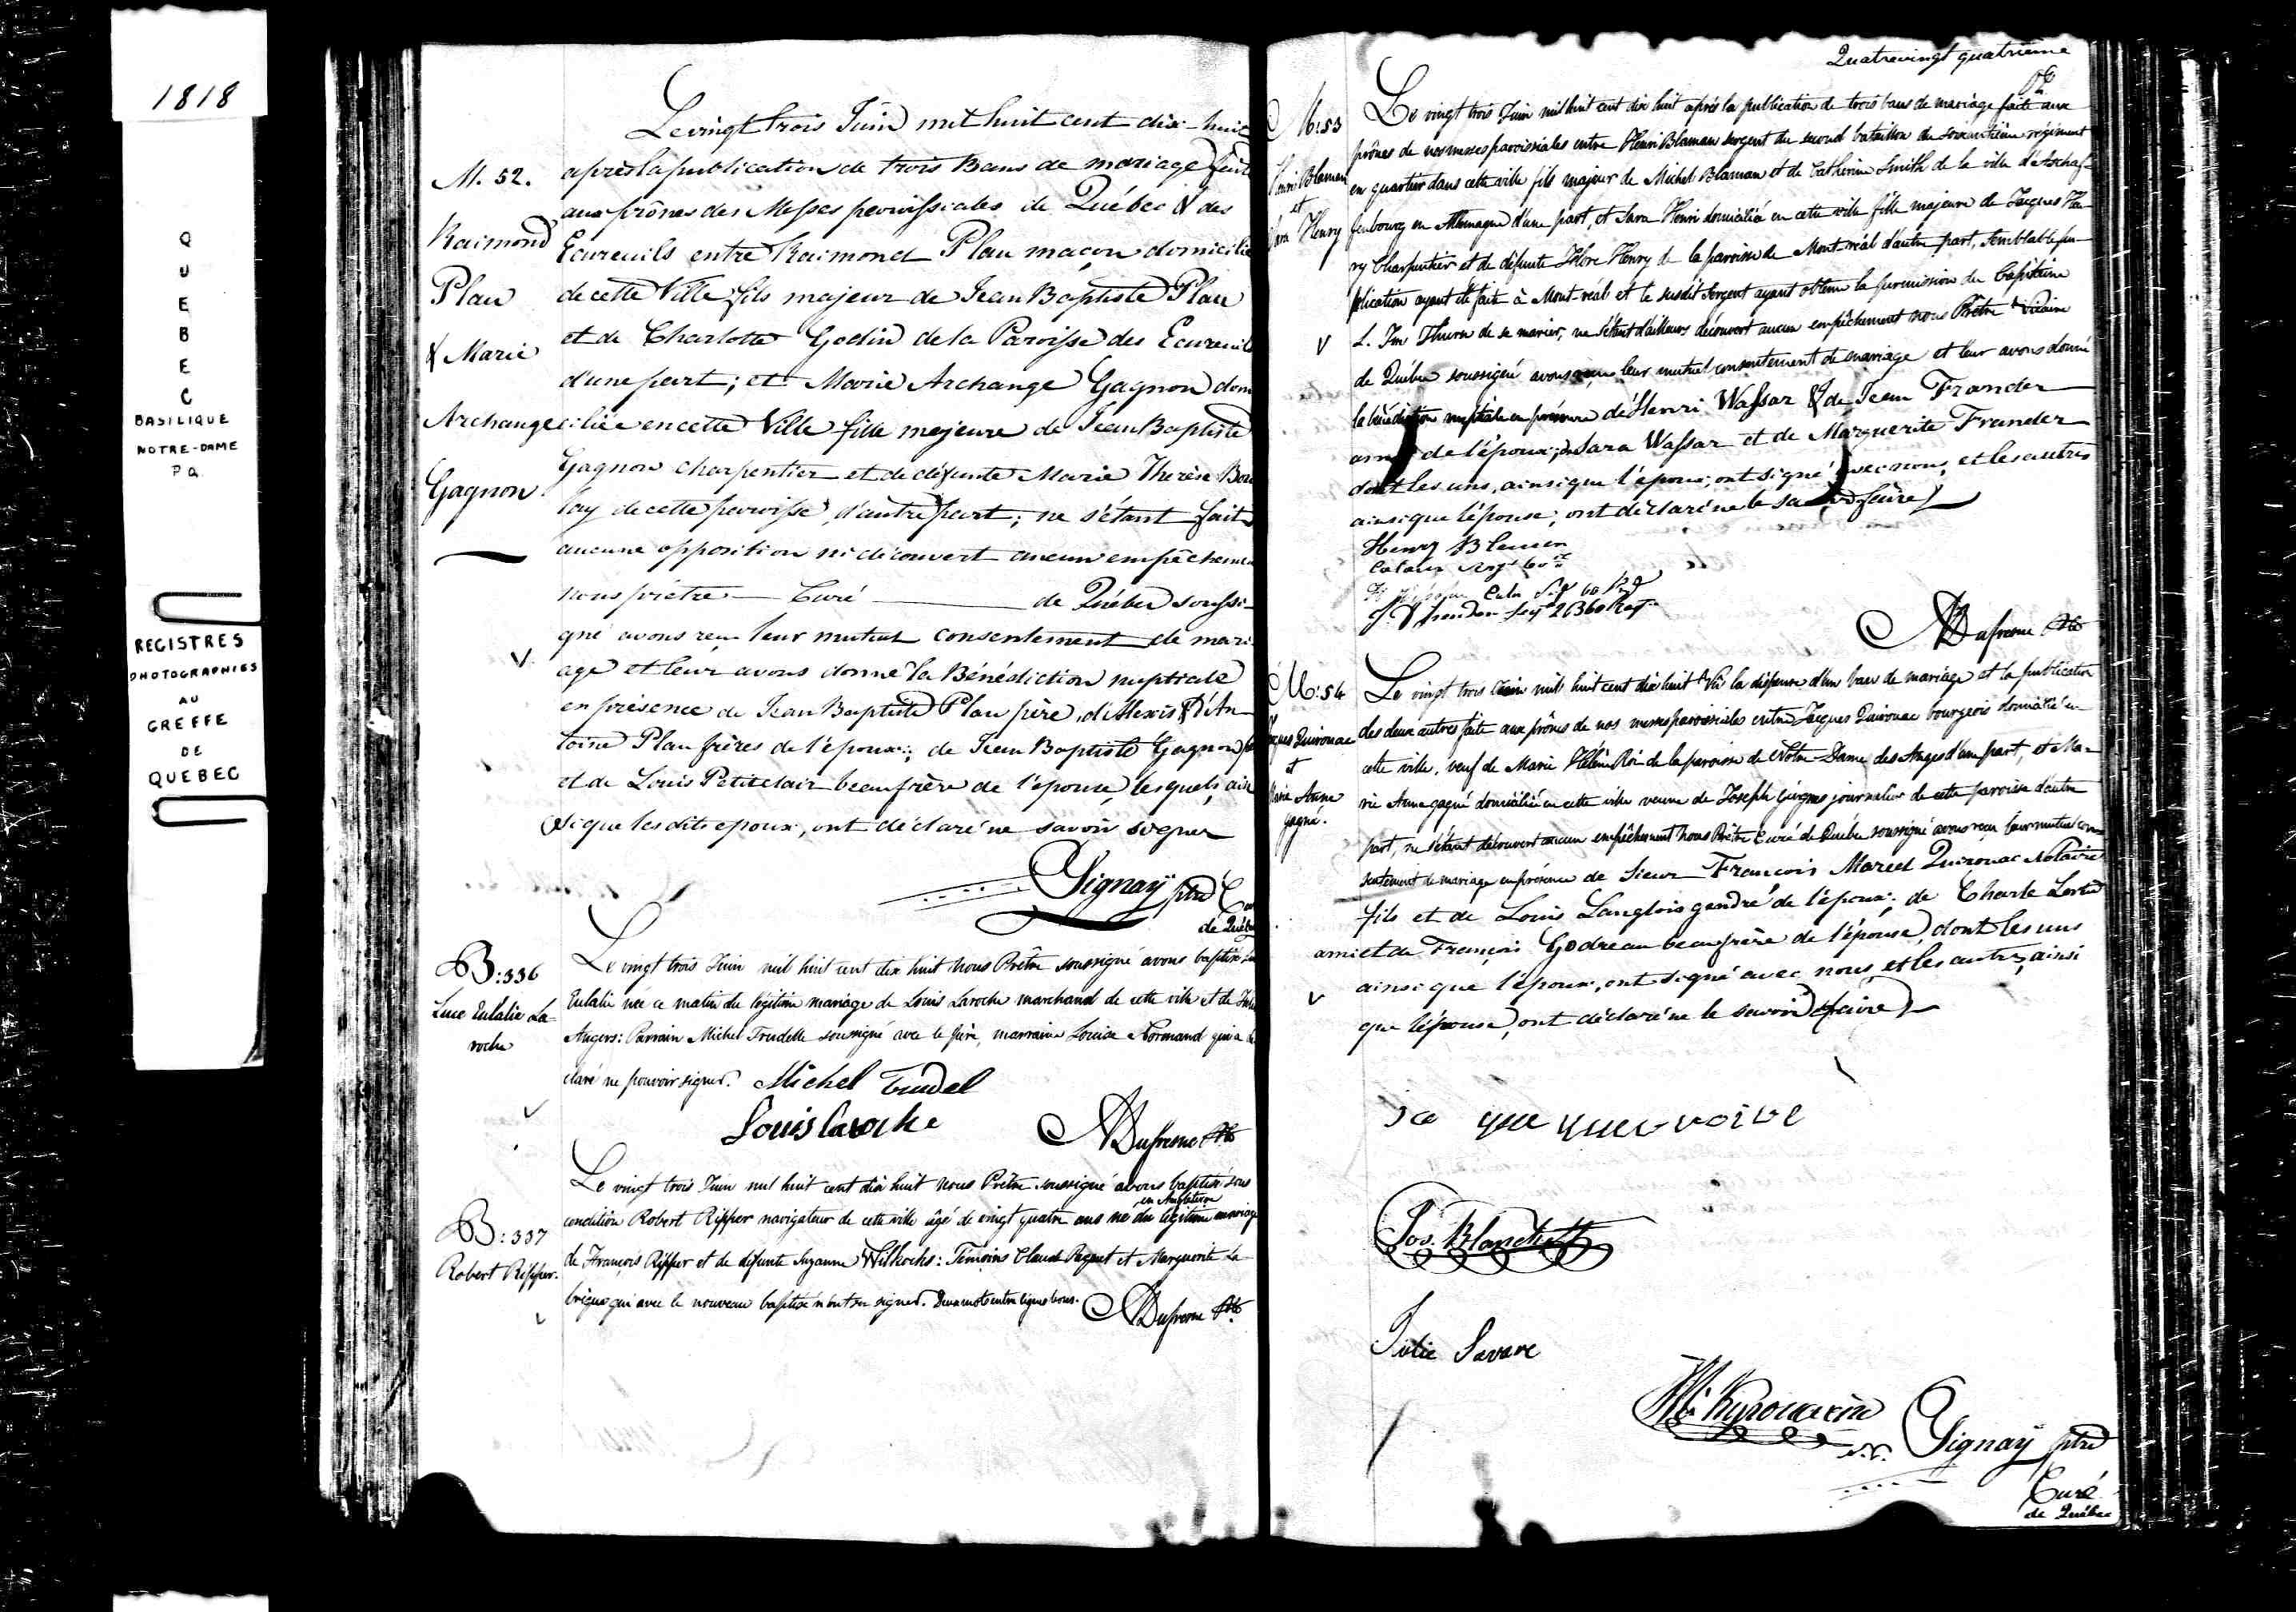 1818
QUEBEC
BASILIQUE
NOTRE-DAME
P Q
REGISTRES
PHOTOGRAPHIES
AU
GREFFE
DE
QUEBEC
M. 52.
Raimond
Plau
& Marie
Archange
Gagnon
Le vingt trois Juin mil huit cent dix-huit
après la publication de trois Bans de mariage faite
aux prônes des Messes paroissiales de Québec & des
Ecureuils entre Raimond Plau maçon domicilié
de cette Ville fils majeur de Jean Baptiste Plau
et de Charlotte Godin de la Paroisse des Ecureuils
d'une part; et Marie Archange Gagnon dom
ciliée en cette Ville fille majeure de Jean Baptiste
Gagnon charpentier et de défunte Marie Therèse Bou
lay de cette paroisse, d'autre part; ne s'étant fait
aucune opposition ni découvert aucun empêchement
nous prêtre Curé de Québec soussi-
gné avons reçu leur mutuel consentement de mari-
age et leur avons donné la Bénédiction nuptiale
en présence de Jean Baptiste Plau père, d'Alexis & d'An-
toine Plau frères de l'époux; de Jean Baptiste Gagnon
et de Louis Petitclair beaufrère de l'épouse, lesquels, ain
si que les dits epoux, ont déclaré ne savoir signer
Signaÿ ptre Curé
de Québec
B: 336
Luce Eulalie La-
roche
Le vingt trois Juin mil huit cent dix huit Nous Prêtre soussigné avons baptisé
Eulalie née ce matin du légitime mariage de Louis Laroche marchand de cette ville et de
Angers: Parrain Michel Trudelle soussigné avec le père, marraine Louise Normand qui a dé
claré ne pouvoir signer. Michel Trudel
Louis Laroche
Dufresne Ptre
B: 337
Robert Ripper.
Le vingt trois Juin mil huit cent dix huit Nous Prêtre soussigné avons baptisé sous
en Angleterre
condition Robert Ripper navigateur de cette ville âgé de vingt quatre ans né du légitime mariage
de François Ripper et de défunte Suzanne Wilkocks: Témoins Claude Paquet et Marguerite La-
brique qui avec le nouveau baptisé n'ont su signer. Deux mots entre lignes bons.
Dufresne Ptre
Quatrevingt quatrième
M: 53
Henri Blaman
et
Sara Henry
Le vingt trois Juin mil huit cent dix huit après la publication de trois bans de mariage faite aux
prônes de nos messes paroissiales entre Henri Blaman sergent du second bataillon du soixantième régiment
en quartier dans cette ville fils majeur de Michel Blaman et de Catherine Smith de la ville d'Aschaf-
fenbourg en Allemagne d'une part, et Sara Henri domiciliée en cette ville fille majeure de Jacques Hen
ry Charpentier et de défunte Henry de la paroisse de Mont-réal d'autre part, semblable pu-
blication ayant été faite à Mont-réal et le susdit Sergent ayant obtenu la permission du Capitaine
L. Im Thurn de se marier, ne s'étant d'ailleurs découvert aucun empêchement nous Prêtre Vicaire
de Québec soussigné avons reçu leur mutuel consentement de mariage et leur avons donné
la bénédiction nuptiale en présence de Henri Wassar & de Jean Frander
amis de l'époux; de Sara Wassar et de Marguerite Frander
dont les uns, ainsi que l'époux, ont signé avec nous, et les autres
ainsi que l'épouse, ont déclaré ne le savoir faire
Henry Blemen
Dufresne Ptre
M: 54
Jacques Quirouac
et
Marie Anne
gagné.
Le vingt trois Juin mil huit cent dix huit Vû la dispense d'un ban de mariage et la publication
des deux autres faite aux prônes de nos messes paroissiales entre Jacques Quirouac bourgeois domicilié en
cette ville, veuf de Marie Hélène Roi de la paroisse de Notre-Dame des Anges d'une part, et Ma-
rie Anne gagné domiciliée en cette ville veuve de Joseph Guignes journalier de cette paroisse d'autre
part, ne s'étant découvert aucun empêchement Nous Prêtre Curé de Québec soussigné avons reçu leur mutuel con-
sentement de mariage en présence de Sieur François Marcel Quirouac Notaire
fils et de Louis Langlois gendre de l'époux; de Charle
ami et de François Godreau beaufrère de l'épouse, dont les uns
ainsi que l'époux, ont signé avec nous, et les autres, ainsi
que l'épouse, ont déclaré ne le savoir faire
Jos. Blanchett
Julie Savare
Signaÿ ptre
Curé
de Québec